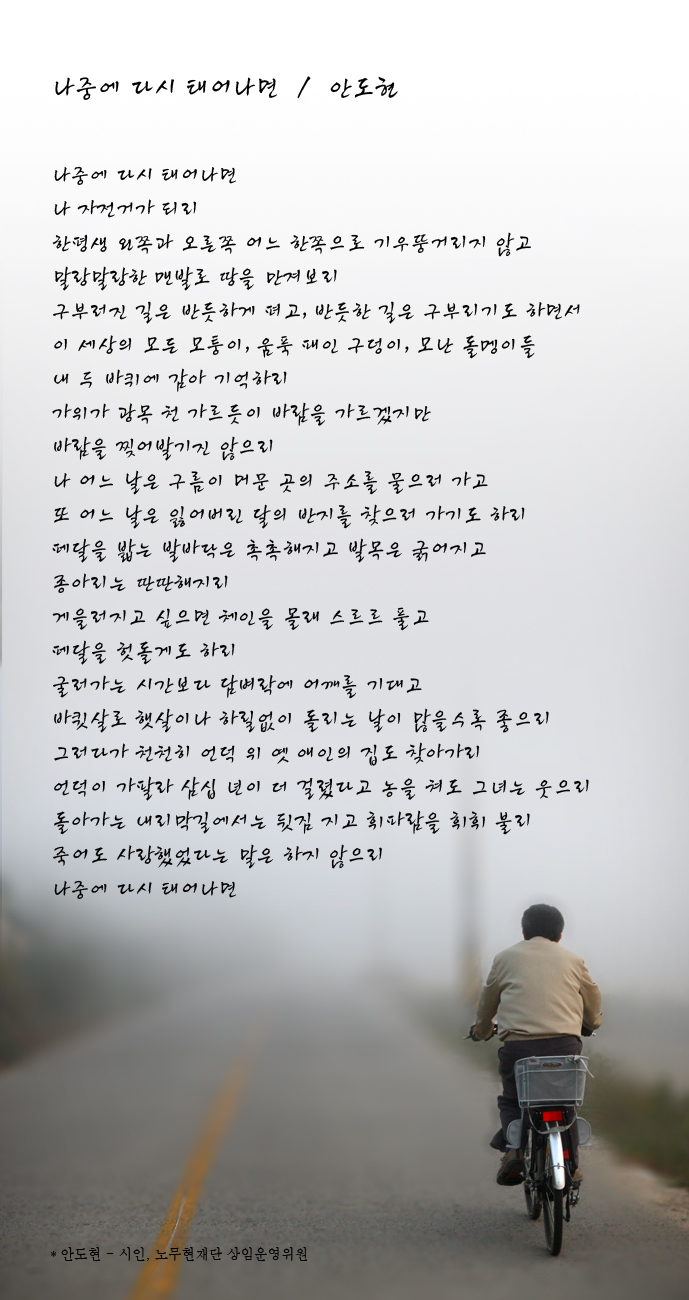 나중에 다시 태어나면 / 안도현
나중에 다시 태어나면
나 자전거가 되리
한평생 왼쪽과 오른쪽 어느 한쪽으로 기우뚱거리지 않고
말랑말랑한 맨발로 땅을 만져보리
구부러진 길은 반듯하게 펴고, 반듯한 길은 구부리기도 하면서
이 세상의 모든 모퉁이, 움푹 패인 구덩이, 모난 돌멩이들
내 두 바퀴에 감아 기억하리
가위가 광목 천 가르듯이 바람을 가르겠지만
바람을 찢어발기진 않으리
나 어느 날은 구름이 머문 곳의 주소를 물으러 가고
또 어느 날은 잃어버린 달의 반지를 찾으러 가기도 하리
페달을 밟는 발바닥은 촉촉해지고 발목은 굵어지고
종아리는 딴딴해지리
게을러지고 싶으면 체인을 몰래 스르르 풀고
페달을 헛돌게도 하리
굴러가는 시간보다 담벼락에 어깨를 기대고
바큇살로 햇살이나 하릴없이 돌리는 날이 많을수록 좋으리
그러다가 천천히 언덕 위 옛 애인의 집도 찾아가리
언덕이 가팔라 삼십 년이 더 걸렸다고 농을 쳐도 그녀는 웃으리
돌아가는 내리막길에서는 뒷짐 지고 휘파람을 휘휘 불리
죽어도 사랑했었다는 말은 하지 않으리
나중에 다시 태어나면
* 안도현 - 시인, 노무현재단 상임운영위원